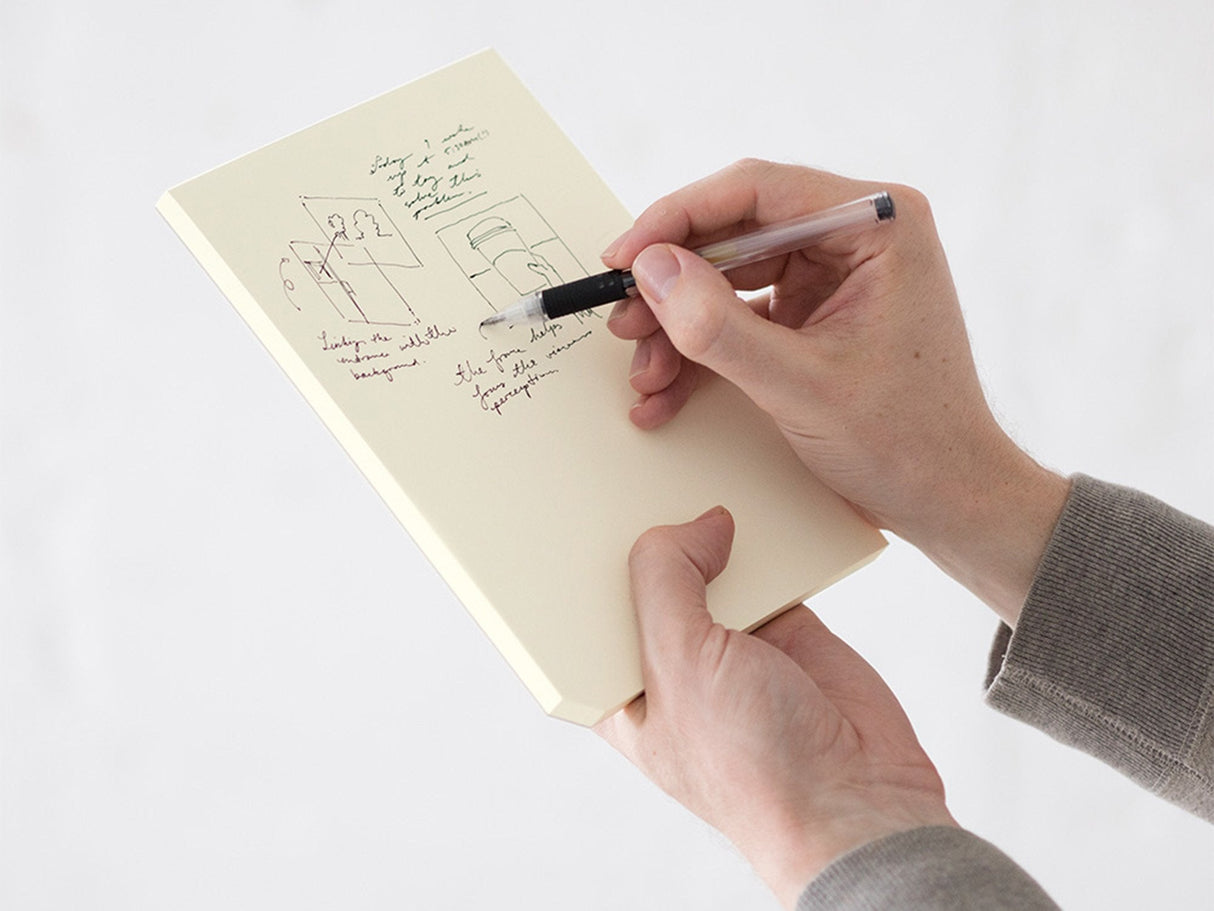 Today I woke
up at 5:30AM
to try and
solve this
problem.
Linking the
entrance with the
background.
the frame helps
the viewer
perception